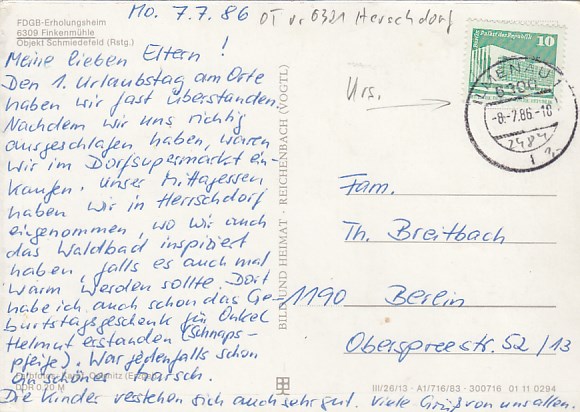 Mo. 7.7.86
OT v. 6321 Herschdorf
FDGB-Erholungsheim
6309 Finkenmühle
Objekt Schmiedefeld (Rstg.)
Meine lieben Eltern!
Den 1. Urlaubstag am Orte
haben wir fast überstanden.
Nachdem wir uns richtig
ausgeschlafen haben, waren
wir im Dorfsupermarkt ein-
kaufen. Unser Mittagessen
haben wir in Herrschdorf
eingenommen, wo wir auch
das Waldbad inspiziert
haben, falls es auch mal
warm werden sollte. Dort
habe ich auch schon das Ge-
burtstagsgeschenk für Onkel
Helmut erstanden (Schnaps-
pfeife). War jedenfalls schon
ein schöner Marsch.
Die Kinder verstehen sich auch sehr gut. Viele Grüße von uns allen.
DDR 0,20 M
BILD UND HEIMAT · REICHENBACH (VOGTL)
Urs.
10
6300
-8.-7.86.-18
Fam.
Th. Breitbach
1190 Berlin
Oberspreestr. 52/13
III/26/13 · A1/716/83 · 300716 01 11 0294